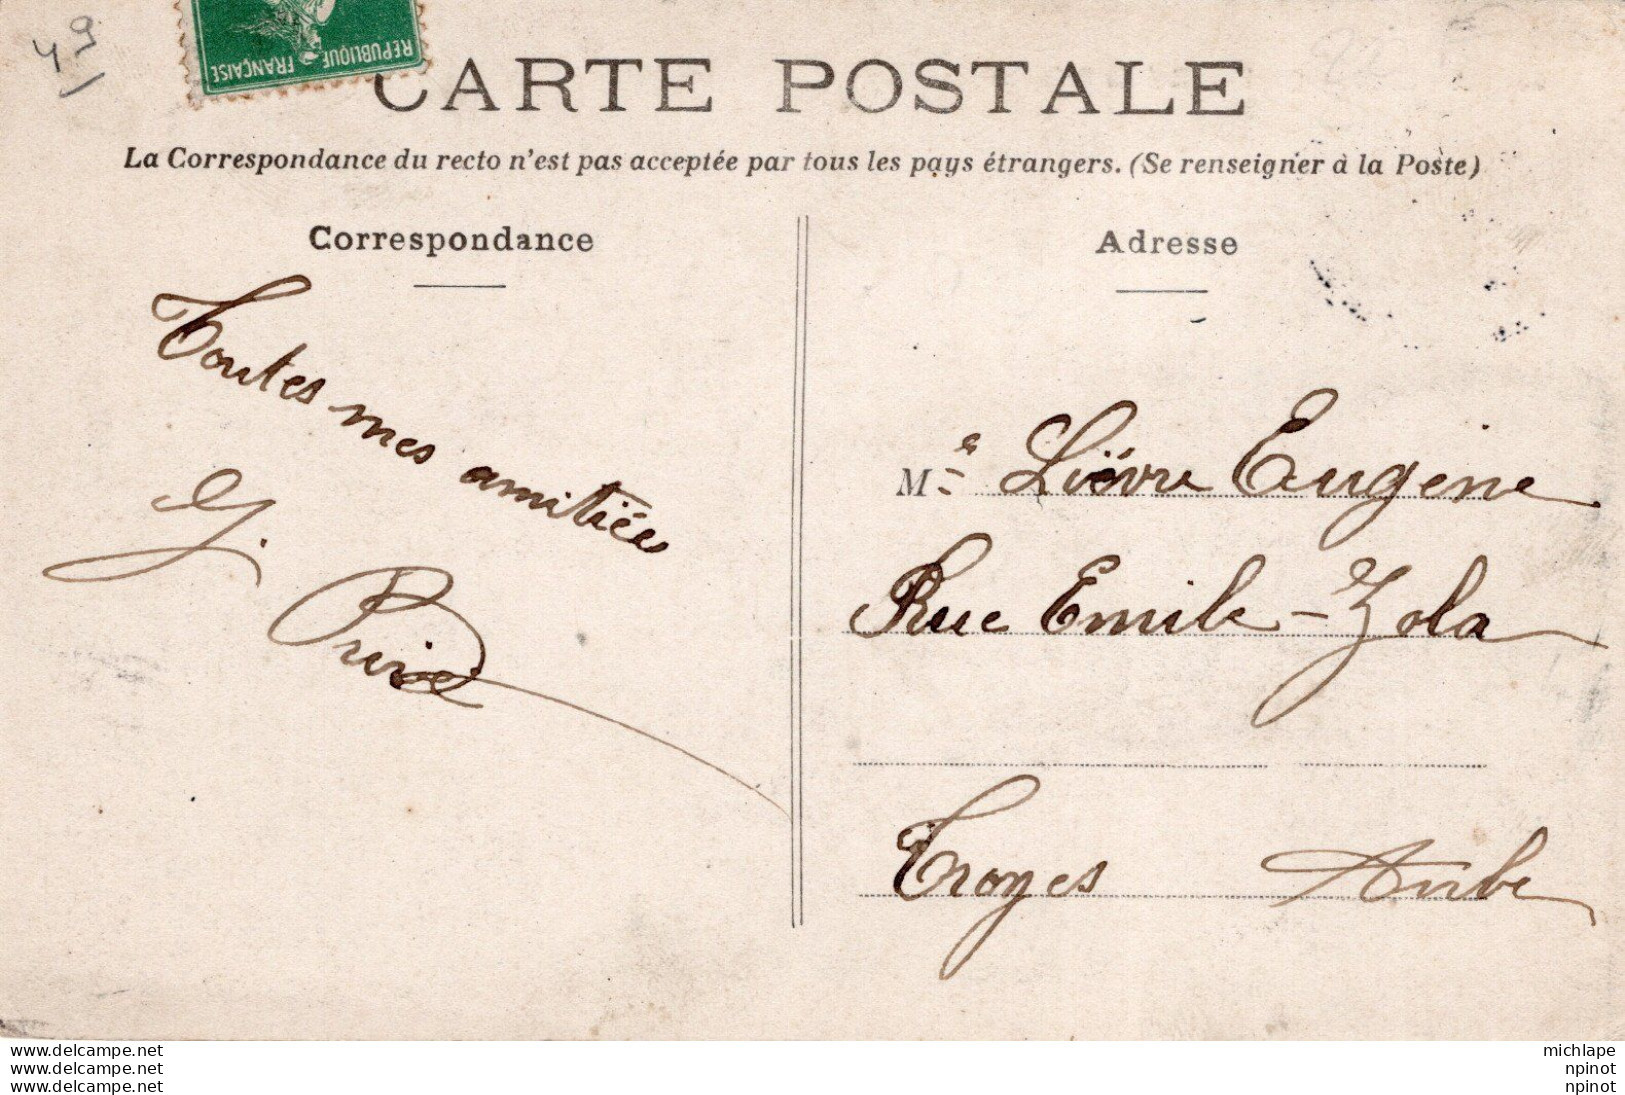 49
REPUBLIQUE FRANÇAISE
CARTE POSTALE
La Correspondance du recto n'est pas acceptée par tous les pays étrangers. (Se renseigner à la Poste)
Correspondance
Toutes mes amitiées
G.
Adresse
Me Lièvre Eugène
Rue Emile-Zola
Troyes Aube
www.delcampe.net
www.delcampe.net
www.delcampe.net
michlape
npinot
npinot